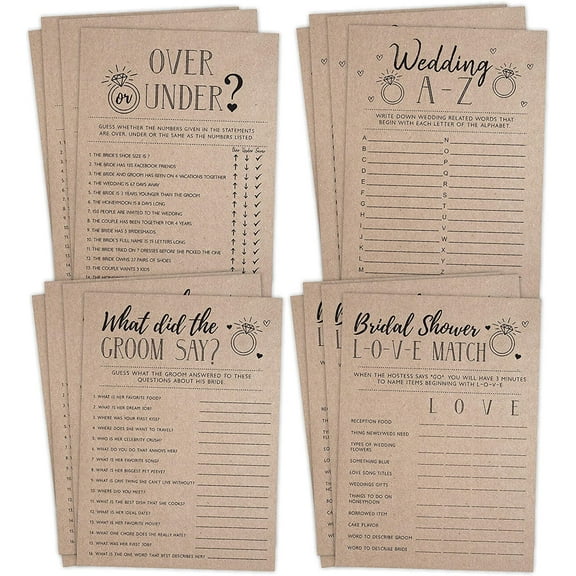 OVER
or
UNDER?
GUESS WHETHER THE NUMBERS GIVEN IN THE STATEMENTS
ARE OVER, UNDER OR THE SAME AS THE NUMBERS LISTED
Over Under Same
1. THE BRIDE'S SHOE SIZE IS 7
2. THE BRIDE HAS 135 FACEBOOK FRIENDS
3. THE BRIDE AND GROOM HAS BEEN ON 4 VACATIONS TOGETHER
4. THE WEDDING IS 67 DAYS AWAY
5. THE BRIDE IS 3 YEARS YOUNGER THAN THE GROOM
6. THE HONEYMOON IS 8 DAYS LONG
7. 150 PEOPLE ARE INVITED TO THE WEDDING
8. THE COUPLE HAS BEEN TOGETHER FOR 4 YEARS
9. THE BRIDE HAS 5 BRIDESMAIDS
10. THE BRIDE'S FULL NAME IS 15 LETTERS LONG
11. THE BRIDE TRIED ON 7 DRESSES BEFORE SHE PICKED THE ONE
12. THE BRIDE OWNS 37 PAIRS OF SHOES
13. THE COUPLE WANTS 3 KIDS
Wedding
A-Z
WRITE DOWN WEDDING RELATED WORDS THAT
BEGIN WITH EACH LETTER OF THE ALPHABET
A N
B O
C P
D Q
E R
F S
G T
H U
I V
J W
K X
L Y
M Z
What did the
GROOM SAY?
GUESS WHAT THE GROOM ANSWERED TO THESE
QUESTIONS ABOUT HIS BRIDE
1. WHAT IS HER FAVORITE FOOD?
2. WHAT IS HER DREAM JOB?
3. WHERE WAS YOUR FIRST KISS?
4. WHERE DOES SHE WANT TO TRAVEL?
5. WHO IS HER CELEBRITY CRUSH?
6. WHAT DO YOU DO THAT ANNOYS HER?
7. WHAT IS HER FAVORITE SONG?
8. WHAT IS HER BIGGEST PET PEEVE?
9. WHAT IS ONE THING SHE CAN'T LIVE WITHOUT?
10. WHERE DID YOU MEET?
11. WHAT IS THE BEST DISH THAT SHE COOKS?
12. WHAT IS HER IDEAL DATE?
13. WHAT IS HER FAVORITE MOVIE?
14. WHAT ONE CHORE DOES SHE REALLY HATE?
15. WHAT WAS HER FIRST JOB?
16. WHAT IS THE ONE WORD THAT BEST DESCRIBES HER?
Bridal Shower
L-O-V-E MATCH
WHEN THE HOSTESS SAYS "GO" YOU WILL HAVE 3 MINUTES
TO NAME ITEMS BEGINNING WITH L-O-V-E
L O V E
RECEPTION FOOD
THING NEWLYWEDS NEED
TYPES OF WEDDING
FLOWERS
SOMETHING BLUE
LOVE SONG TITLES
WEDDINGS GIFTS
THINGS TO DO ON
HONEYMOON
BORROWED ITEM
CAKE FLAVOR
WORD TO DESCRIBE GROOM
WORD TO DESCRIBE BRIDE